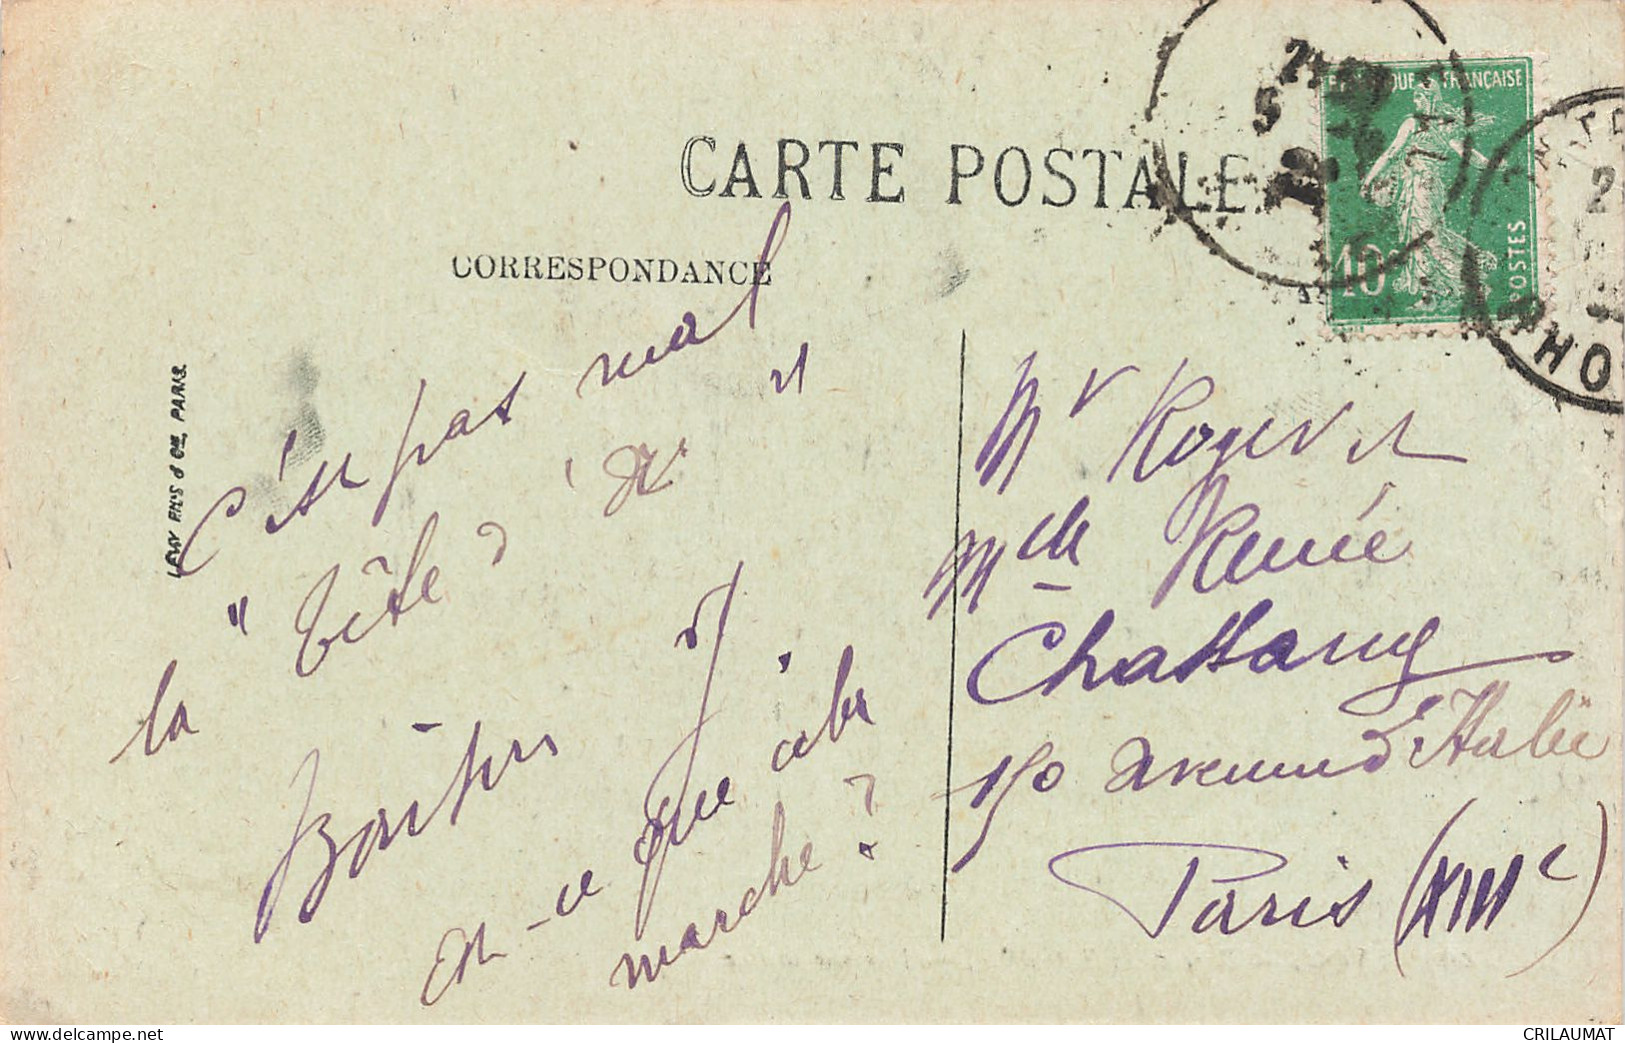 CARTE POSTALE
CORRESPONDANCE
RÉPUBLIQUE FRANÇAISE
10
POSTES
LEVY FILS & Cie, PARIS.
C'est pas mal
la "Tête de
et
Est-ce que cela
marche ?
Mr Roger et
Melle Renée
Chattang
150 avenue d'Italie
Paris (XIIIe)
CRILAUMAT